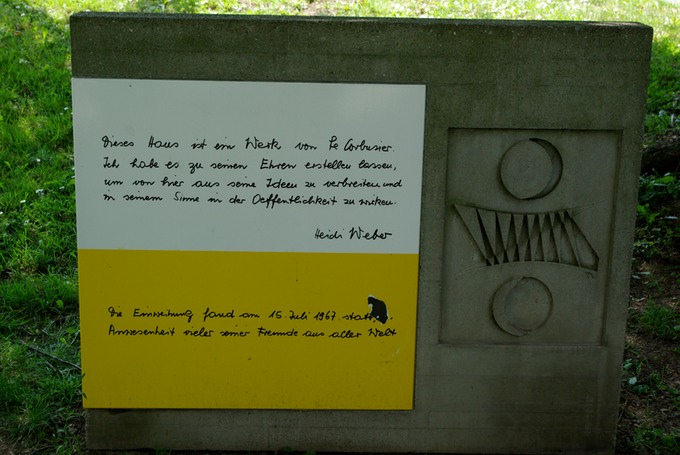 Dieses Haus ist ein Werk von Le Corbusier.
Ich habe es zu seinen Ehren erstellen lassen,
um von hier aus seine Ideen zu verbreiten und
in seinem Sinne in der Oeffentlichkeit zu wirken.
Heidi Weber
Die Einweihung fand am 15. Juli 1967
Anwesenheit vieler seiner Freunde aus aller Welt